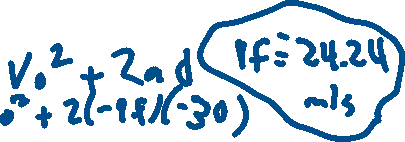 Vo² + 2ad
0² + 2(-9.8)(-30)
Vf = 24.24
m/s